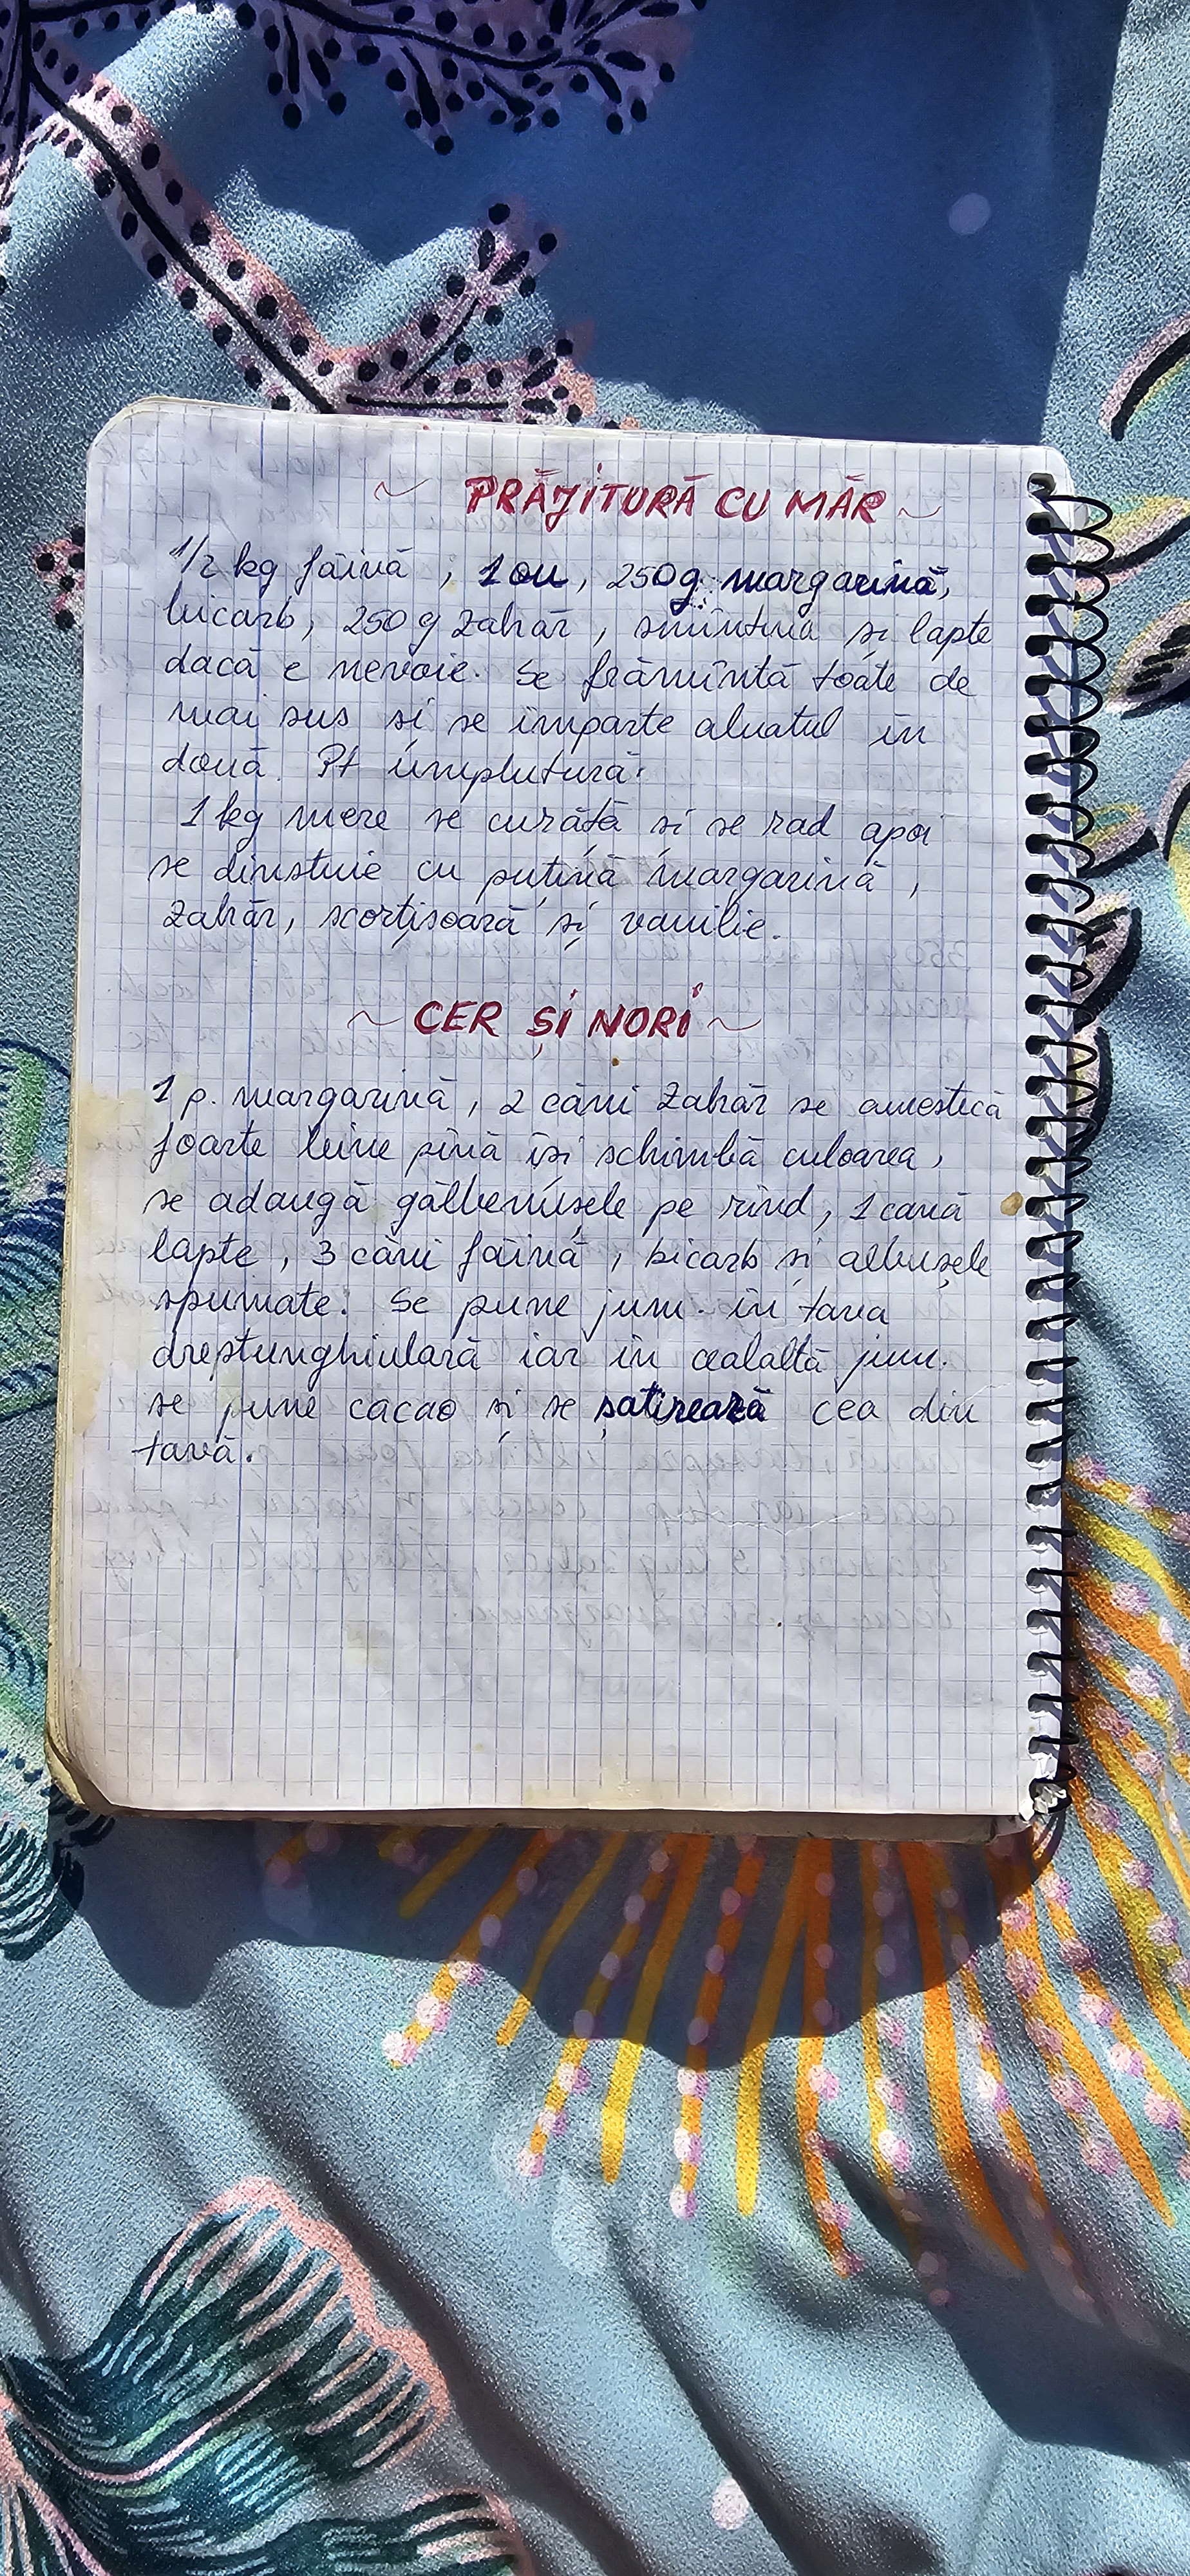 ~ PRĂJITURĂ CU MĂR ~
1/2 kg făină, 1 ou, 250g margarină,
bicarb, 250 g zahăr, smîntînă și lapte
dacă e nevoie. Se frămîntă toate de
mai sus și se împarte aluatul în
două. Pt umplutură:
1 kg mere se curăță și se rad apoi
se dinstuie cu puțină margarină,
zahăr, scorțișoară și vanilie.
~ CER ȘI NORI ~
1 p. margarină, 2 căni zahăr se amestică
foarte bine pînă își schimbă culoarea,
se adaugă gălbenușele pe rînd, 1 cană
lapte, 3 căni făină, bicarb și albușele
spumate. Se pune jum. în tava
dreptunghiulară iar în cealaltă jum.
se pune cacao și se șatirează cea din
tavă.